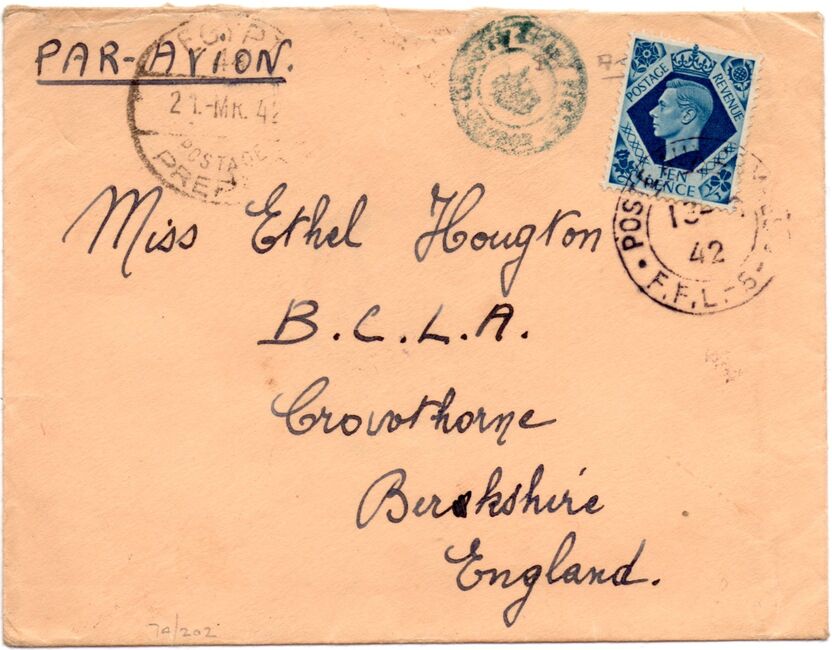 PAR-AVION.
EGYPT
21.-MR.42
POSTAGE
PREP
POSTAGE
REVENUE
TEN
PENCE
POS
13
42
• F.F.L.-S.
Miss Ethel Hougton
B.C.L.A.
Crowthorne
Berkshire
England.
74/202